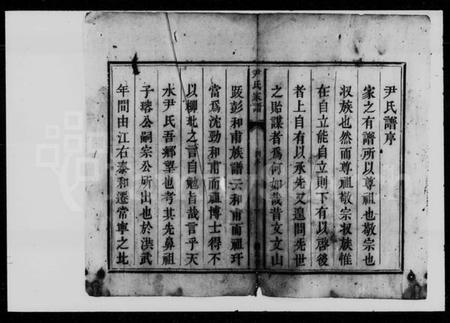 尹氏譜序
家之有譜所以尊祖也敬宗也
収族也然而尊祖敬宗収族惟
在自立能自立則下有以啓後
者上自有以承先又遑問先世
之貽謀者爲何如哉昔文文山
尹氏家譜
跋彭和甫族譜云和甫而祖玕
當爲沈勁和甫而祖博士得不
以柳玭之言自勉旨哉言乎天
水尹氏吾鄉望也考其先鼻祖
子璿公嗣宗公所出也於洪武
年間由江右泰和遷常寧之北